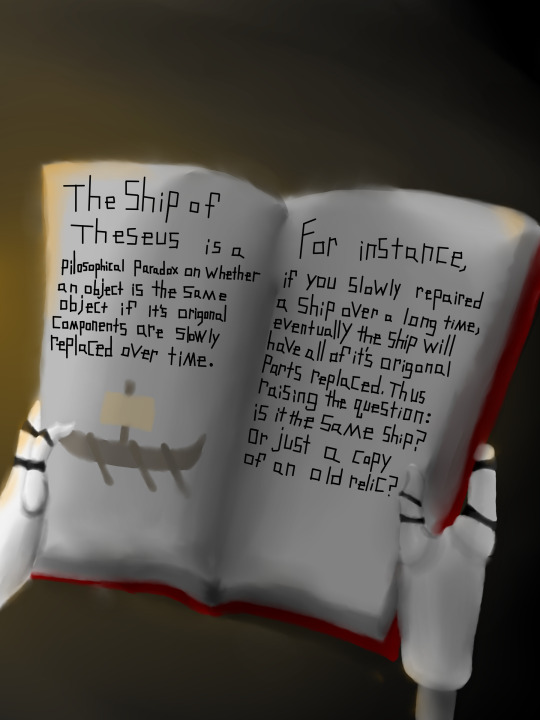 The Ship of
Theseus is a
Pilosophical Paradox on whether
an object is the same
object if it's origonal
Components are slowly
replaced over time.
For instance,
if you slowly repaired
a Ship over a long time,
eventually the ship will
have all of it's origonal
Parts replaced. Thus
raising the question:
is it the same ship?
Or just a copy
of an old relic?